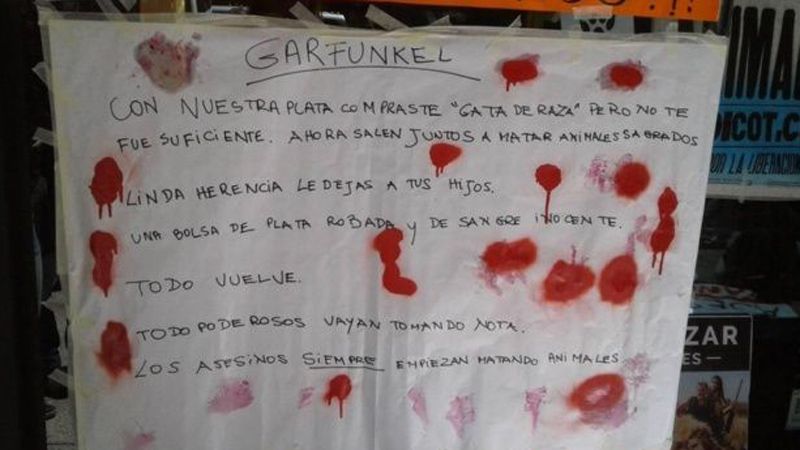 !!
GARFUNKEL
CON NUESTRA PLATA COMPRASTE "GATA DE RAZA" PERO NO TE
FUE SUFICIENTE. AHORA SALEN JUNTOS A MATAR ANIMALES SAGRADOS
LINDA HERENCIA LE DEJAS A TUS HIJOS.
UNA BOLSA DE PLATA ROBADA y DE SANGRE INOCENTE.
TODO VUELVE.
TODO PODEROSOS VAYAN TOMANDO NOTA.
LOS ASESINOS SIEMPRE EMPIEZAN MATANDO ANIMALES
IMAL
DICOT.C
POR LA LIBERACION
ZAR
ES —